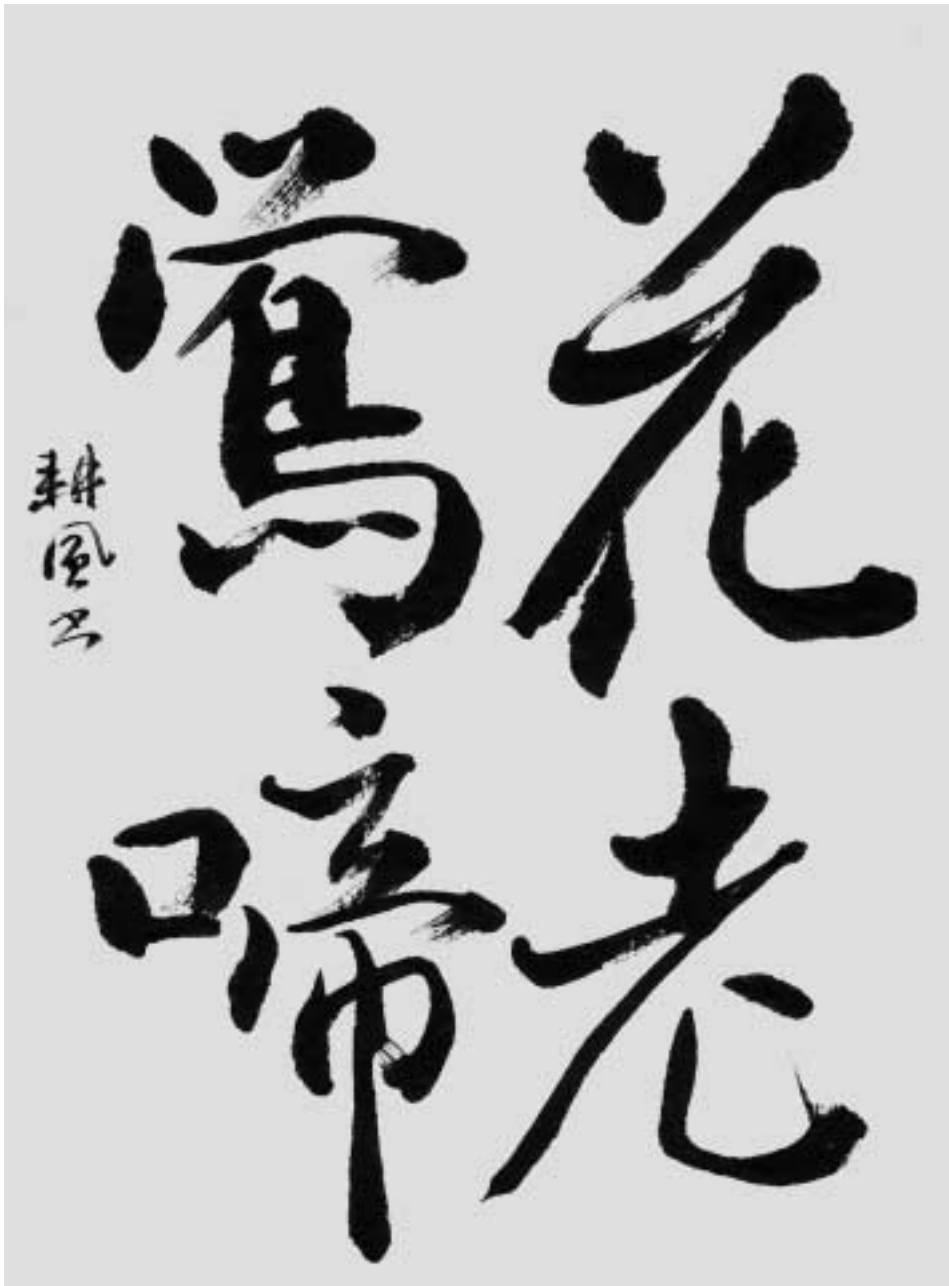 花老
鶯啼
耕風书